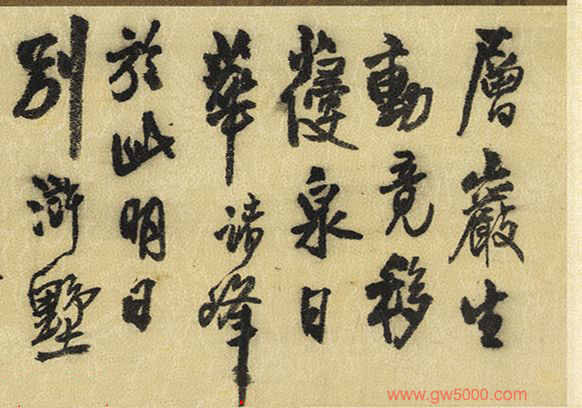 層巖生
動竟移
泉日
華諸峰
於此明日
別滸墅
www.gw5000.com